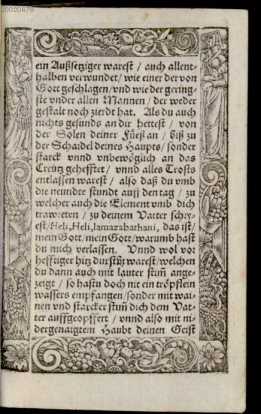 ein Außsetziger warest / auch allent-
halben verwundet / wie einer der von
Gott geschlagen / vnd wie der gering-
ste vnder allen Mannen / der weder
gestalt noch zierd hat. Als du auch
nichts gesunds an dir hettest / von
der Solen deiner Füeß an / biß zu
der Schaidel deines Haupts / sonder
starck vnnd vnbewöglich an das
Creütz gehefftet / vnnd alles Trosts
entlassen warest / also daß du vmb
die neundte stund auff den tag / zu
welcher auch die Element vmb dich
trawreten / zu deinem Vatter schry-
est / Heli, Heli, lamazabathani, das ist /
mein Gott, mein Gott / warumb hast
du mich verlassen. Vnnd wol vor
hefftiger hitz durstig warest / welchen
du dann auch mit lauter stim̃ ange-
zeigt / so hastu doch nit ein tröpflein
wassers empfangen / sonder mit wai-
nen vnd starcker stim̃ dich dem Vat-
ter auffgeopffert / vnnd also mit ni-
dergenaigtem Haubt deinen Geist